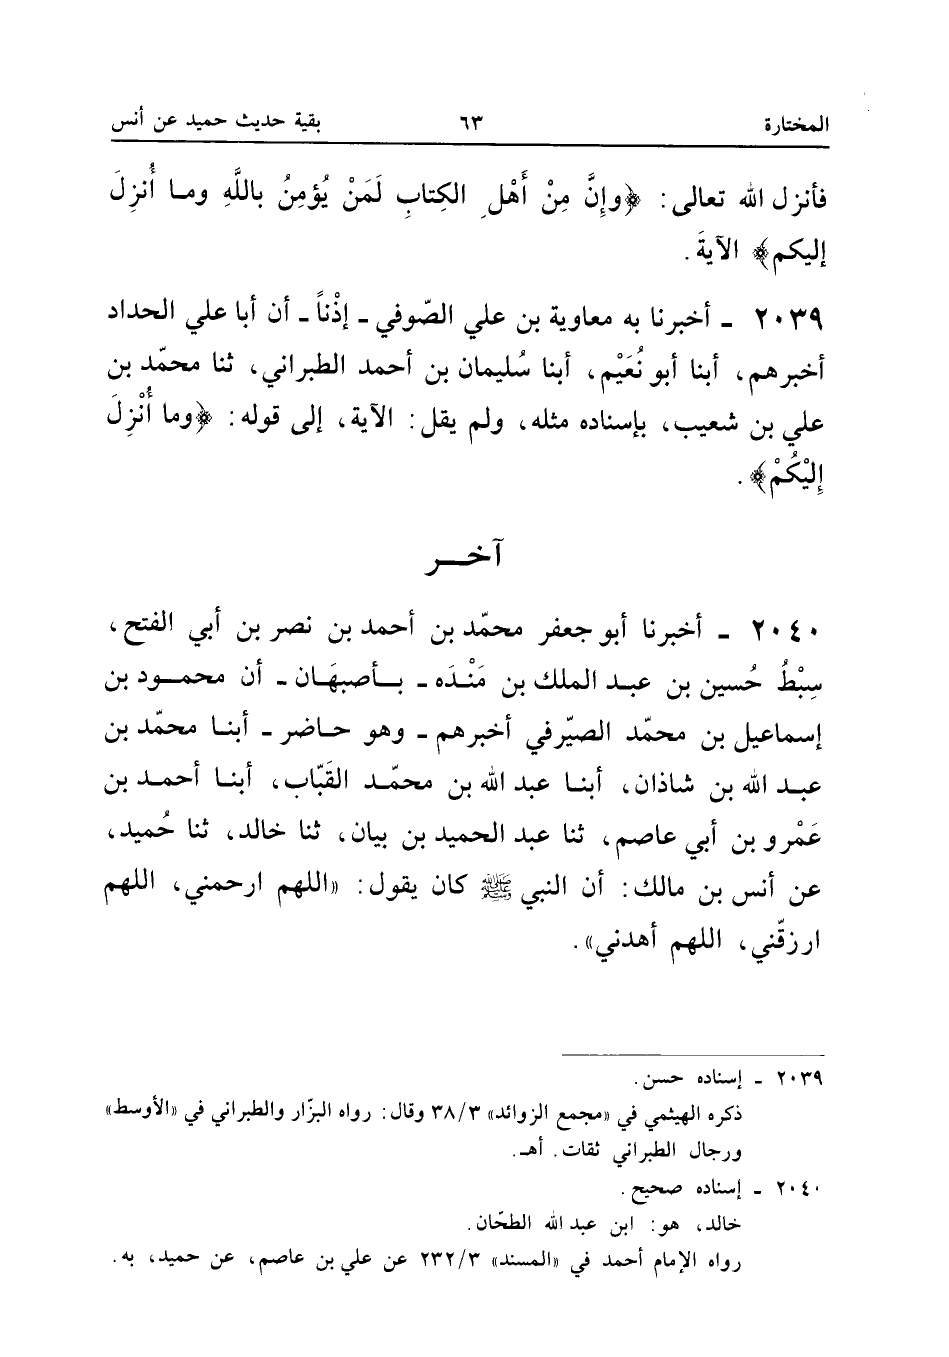 المختارة ٦٣ بقية حديث حميد عن أنس
فأنزل الله تعالى: ﴿وإِنَّ مِنْ أَهْلِ الكِتابِ لَمَنْ يُؤمِنُ باللَّهِ وما أُنزِلَ
إليكم﴾ الآيةَ.
٢٠٣٩ ـ أخبرنا به معاوية بن علي الصّوفي ـ إذْناً ـ أن أبا علي الحداد
أخبرهم، أبنا أبو نُعَيْم، أبنا سُليمان بن أحمد الطبراني، ثنا محمّد بن
علي بن شعيب، بإسناده مثله، ولم يقل: الآية، إلى قوله: ﴿وما أُنْزِلَ
إِلَيْكُمْ﴾.
آخـــر
٢٠٤٠ ـ أخبرنا أبو جعفر محمّد بن أحمد بن نصر بن أبي الفتح،
سِبْطُ حُسين بن عبد الملك بن مَنْدَه ـ بأصبهَان ـ أن محمود بن
إسماعيل بن محمّد الصيّرفي أخبرهم ـ وهو حاضر ـ أبنا محمّد بن
عبد الله بن شاذان، أبنا عبد الله بن محمّد القَبّاب، أبنا أحمد بن
عَمْرو بن أبي عاصم، ثنا عبد الحميد بن بيان، ثنا خالد، ثنا حُميد،
عن أنس بن مالك: أن النبي ﷺ كان يقول: «اللهم ارحمني، اللهم
ارزقّني، اللهم أهدني».
٢٠٣٩ ـ إسناده حسن.
ذكره الهيثمي في «مجمع الزوائد» ٣٨/٣ وقال: رواه البزّار والطبراني في «الأوسط»
ورجال الطبراني ثقات. أهـ.
٢٠٤٠ ـ إسناده صحيح.
خالد، هو: ابن عبد الله الطحّان.
رواه الإمام أحمد في «المسند» ٢٣٢/٣ عن علي بن عاصم، عن حميد، به.